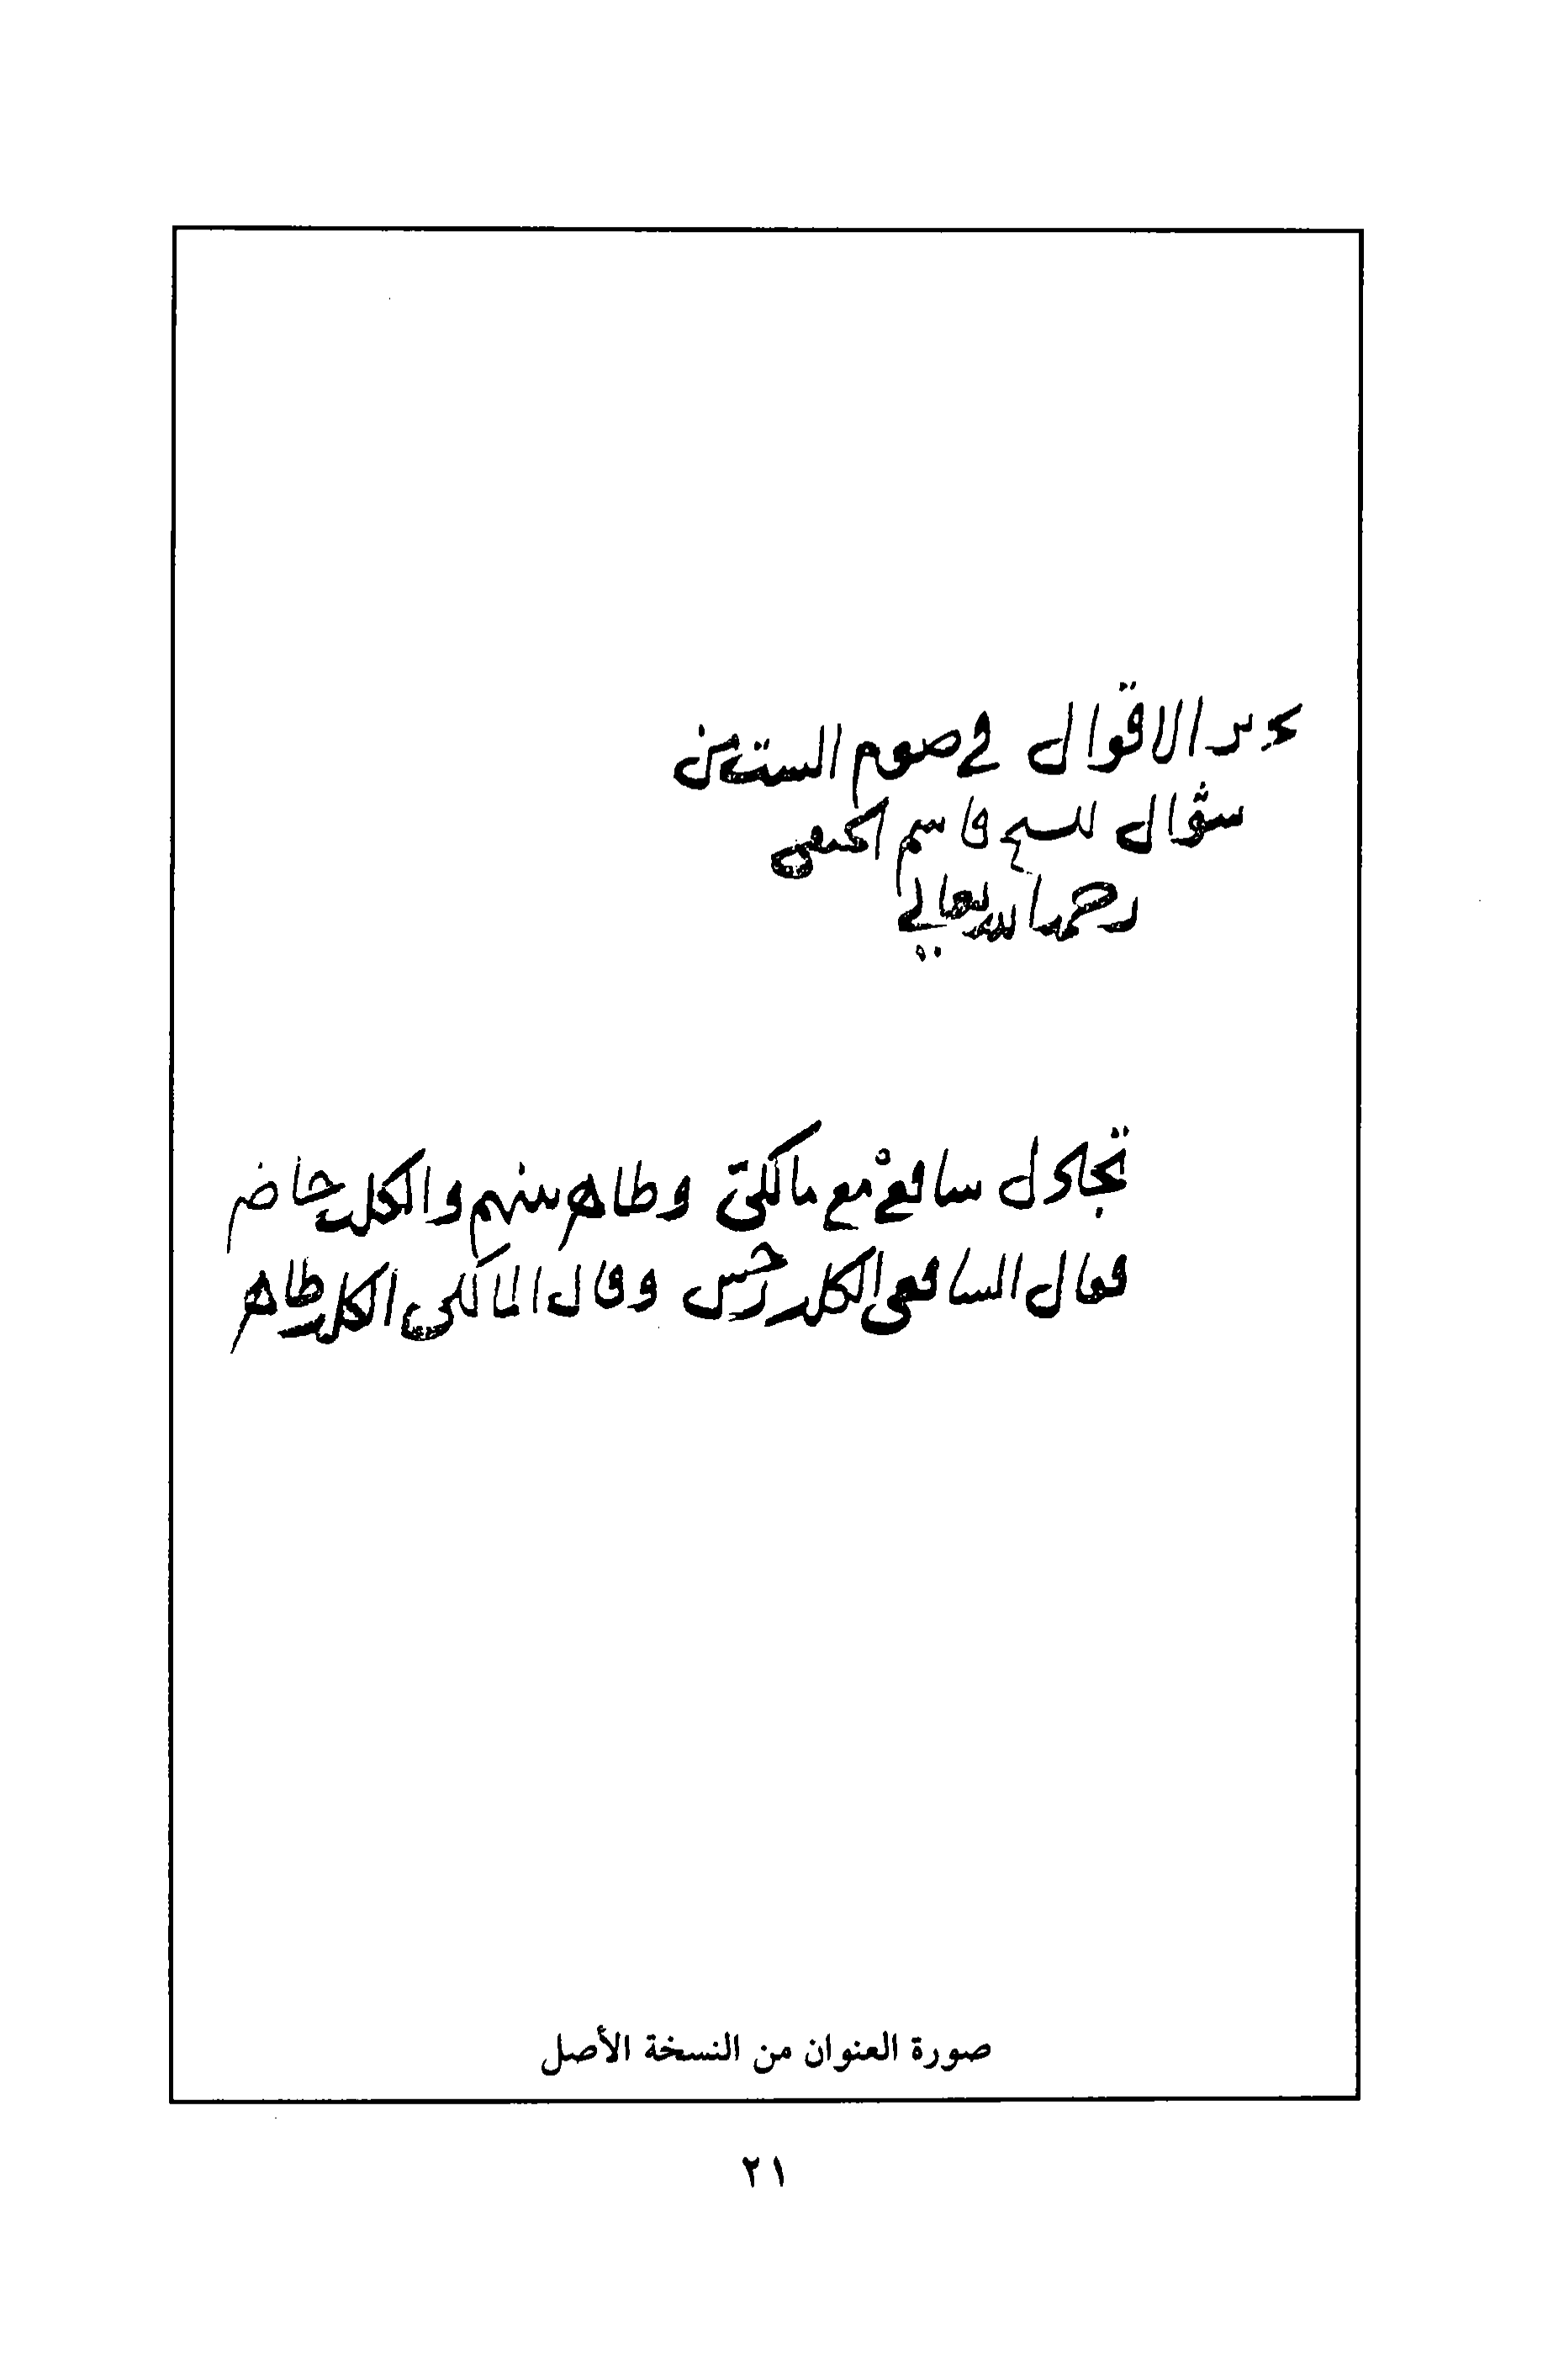 تحرير الاقوال في صوم الست من
شوال للشيخ قاسم الحنفي
رحمه الله تعالى
تجادل شافعي مع مالكي وطاهر بينهم والكلب حاضر
فقال الشافعي الكلب رجس وقال المالكي الكلب طاهر
صورة العنوان من النسخة الأصل
٢١